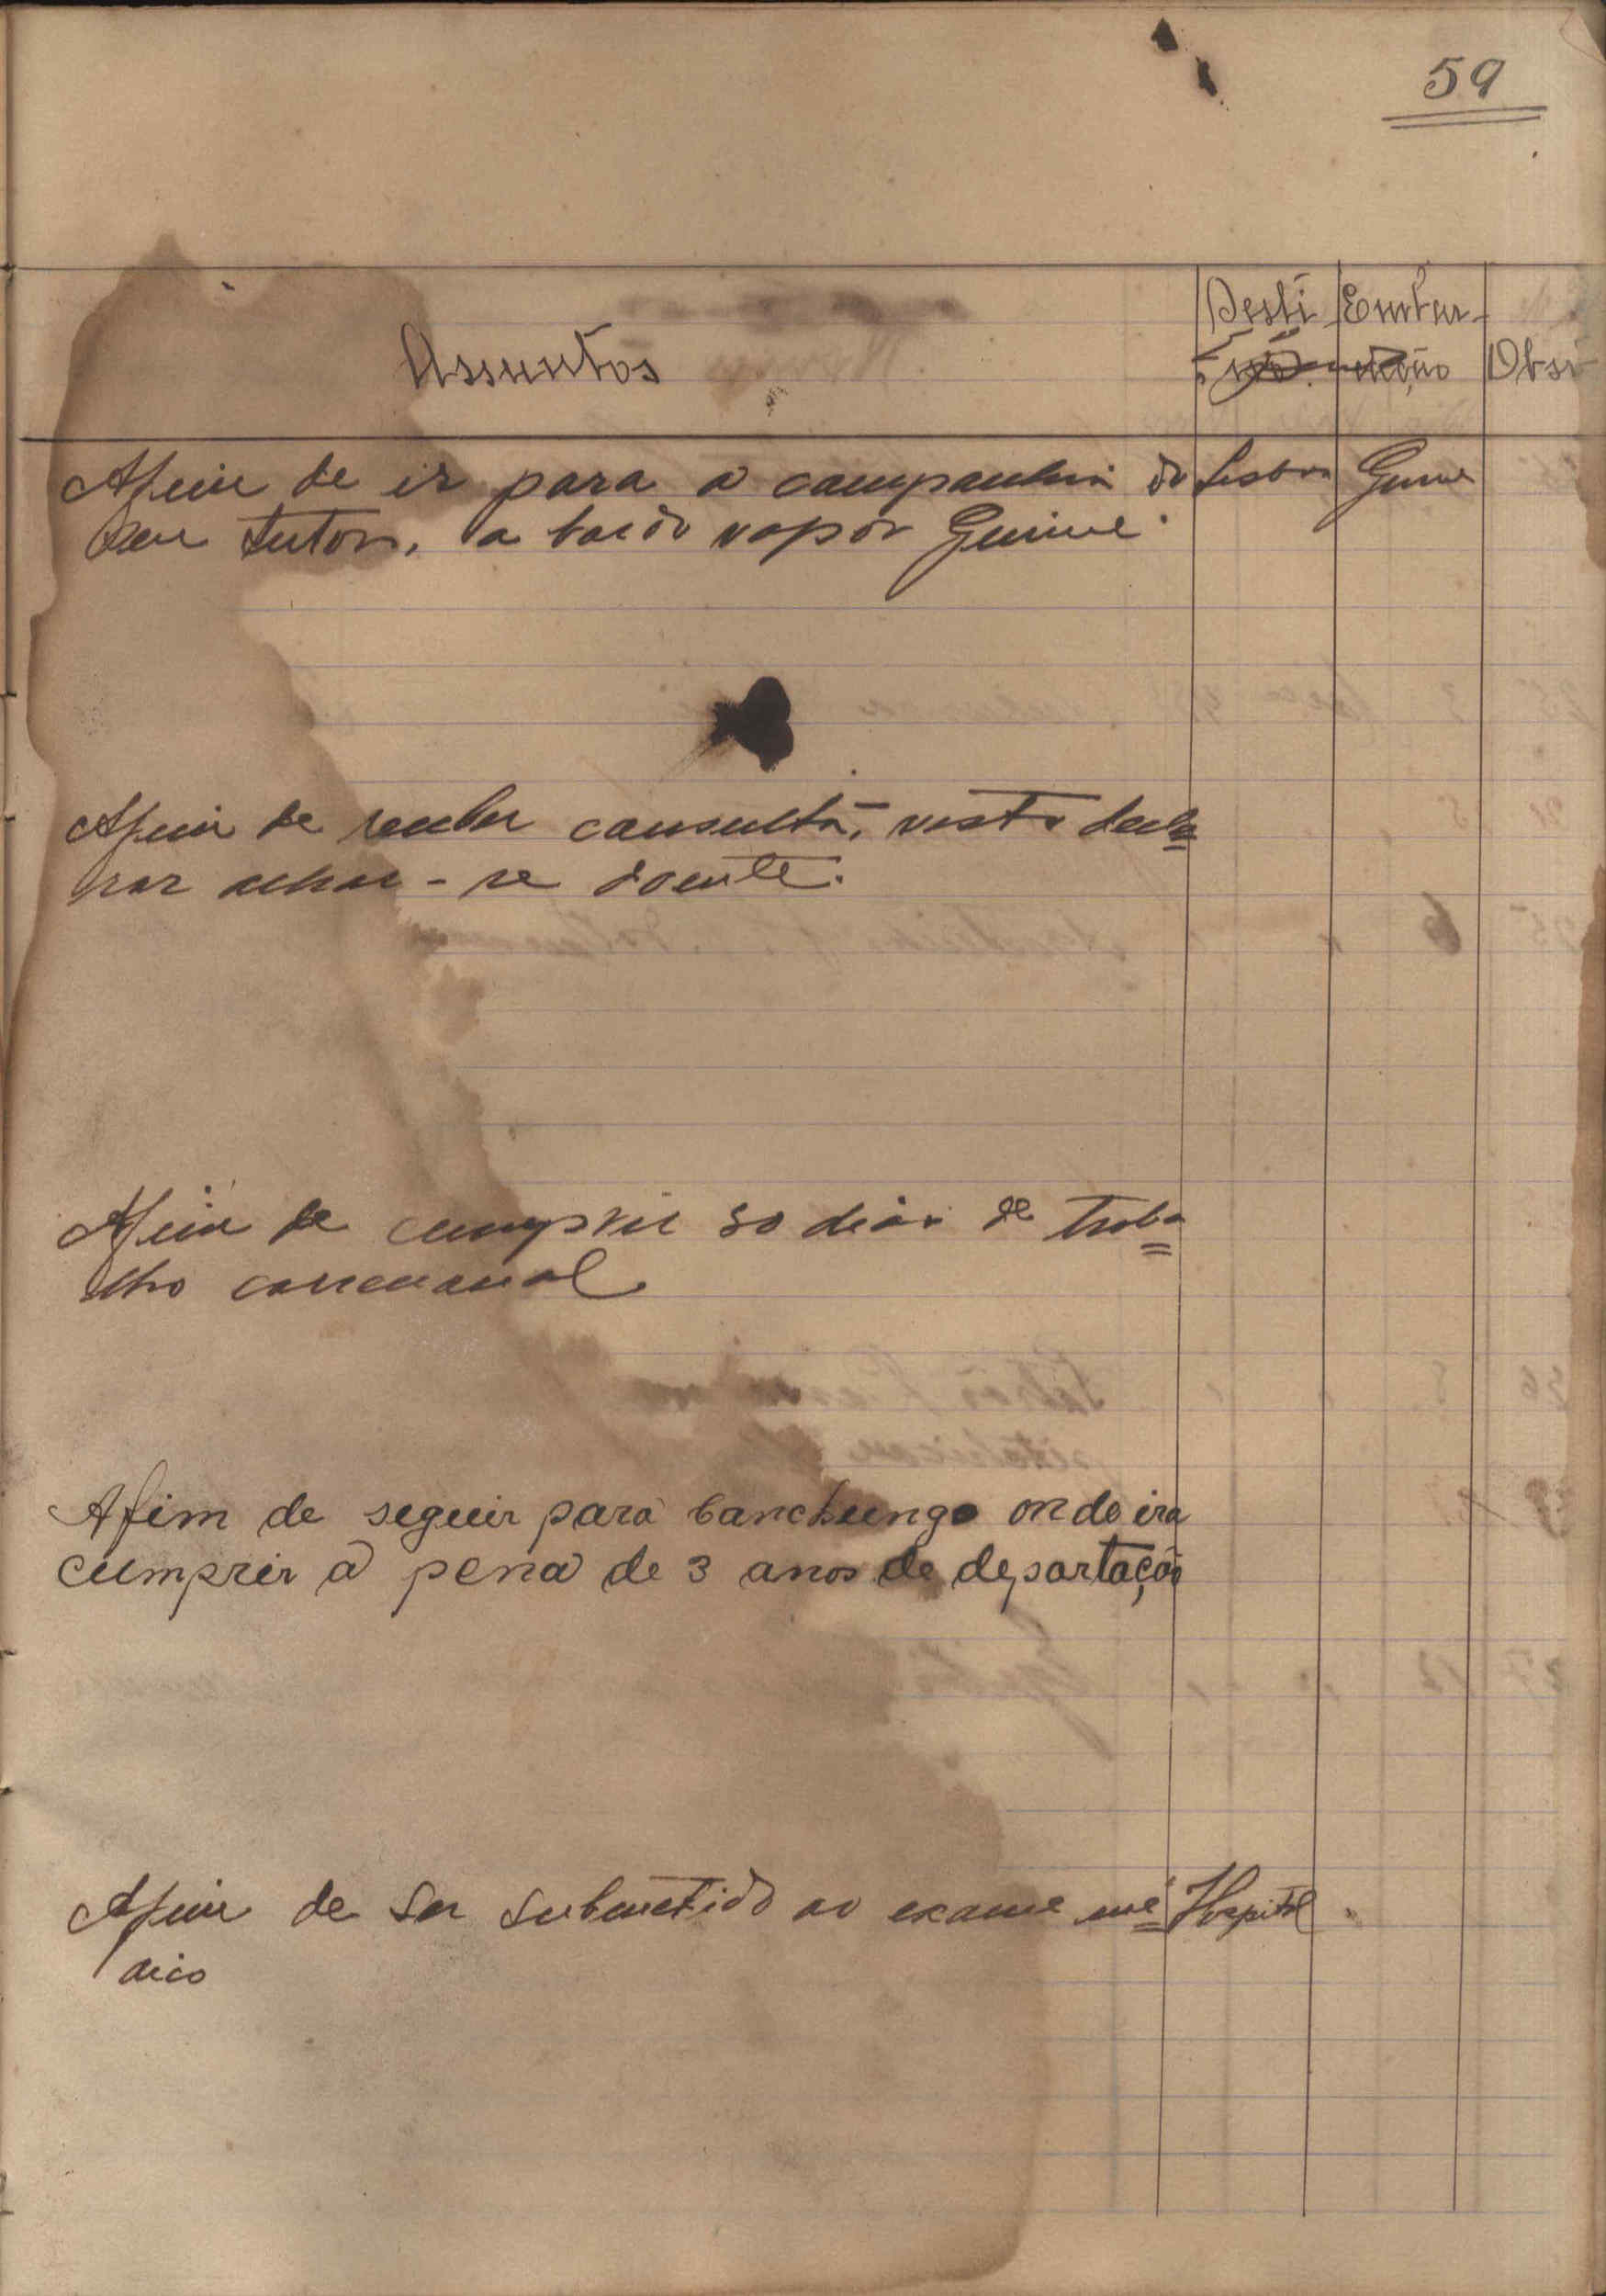 59
Assuntos
Desti-
no
Embar-
cação
Obsr
Afim de ir para a companhia do
seu tutor, a bordo vapor Guiné.
Lisboa
Guiné
Afim de receber consulta, visto decla
rar achar-se doente.
Afim de cumprir 30 dias de traba
lho correcional
Afim de seguir para Canchungo onde ira
cumprir a pena de 3 anos de deportação
Afim de ser submetido ao exame mé
dico
Hospital